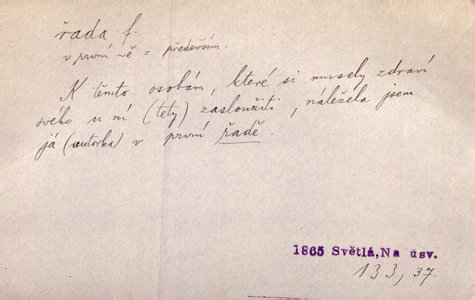 řada f.
v první ~ě = především.
K těmto osobám, které si musely zdraví
svého u ní (tety) zasloužiti, náležela jsem
já (autorka) v první řadě.
1865 Světlá, Na úsv.
133, 37.